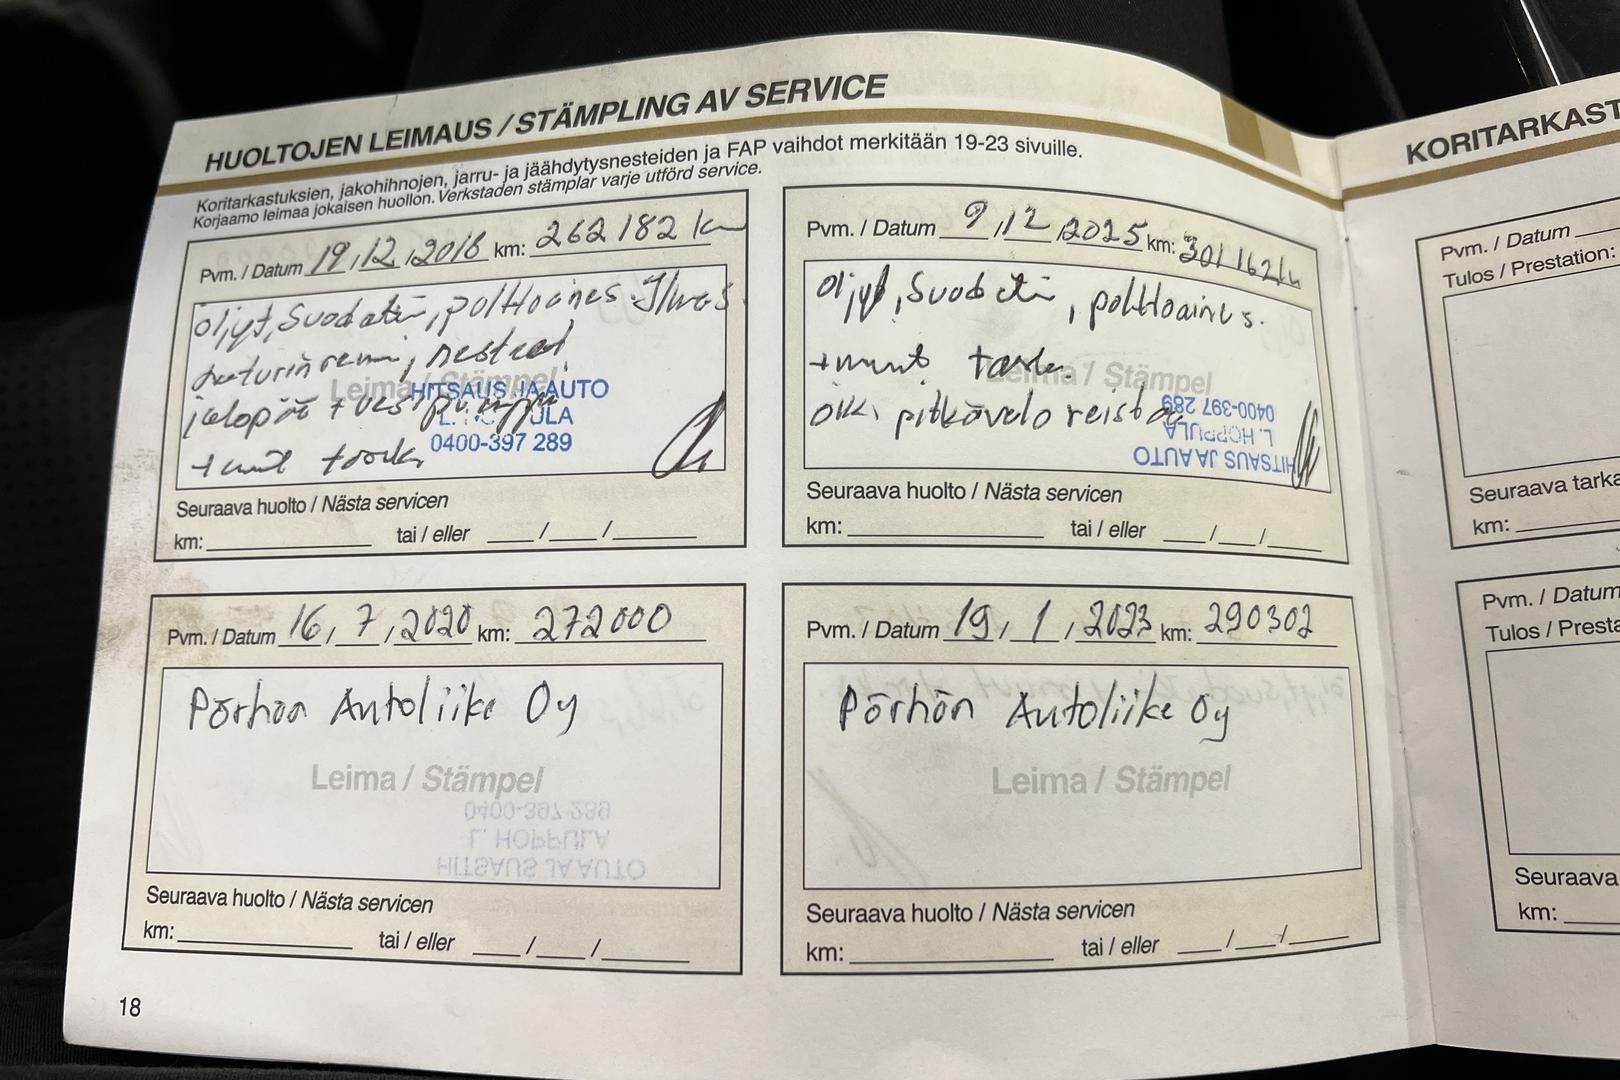 HUOLTOJEN LEIMAUS / STÄMPLING AV SERVICE
Koritarkastuksien, jakohihnojen, jarru- ja jäähdytysnesteiden ja FAP vaihdot merkitään 19-23 sivuille.
Korjaamo leimaa jokaisen huollon. Verkstaden stämplar varje utförd service.
Pvm. / Datum 19,12,2016 km: 262 182 km
öljyt, Suodatin, polttoaines. Ilmas.
nesteet
Leima / Stämpel
HITSAUS JA AUTO
jakopää + vesipumppu
0400-397 289
Seuraava huolto / Nästa servicen
km: tai / eller / /
Pvm. / Datum 9,12,2025 km: 301 162
öljyt, Suodatin, polttoainus.
+ muut tark.
Leima / Stämpel
oik. pitkävalo
0400-397 289
L. HOPPULA
HITSAUS JA AUTO
Seuraava huolto / Nästa servicen
km: tai / eller / /
Pvm. / Datum 16, 7, 2020 km: 272000
Pörhön Autoliike Oy
Leima / Stämpel
0400-397 289
L. HOPPULA
HITSAUS JA AUTO
Seuraava huolto / Nästa servicen
km: tai / eller / /
Pvm. / Datum 19, 1, 2023 km: 290302
Pörhön Autoliike Oy
Leima / Stämpel
Seuraava huolto / Nästa servicen
km: tai / eller / /
18
KORITARKAST
Pvm. / Datum
Tulos / Prestation:
Seuraava tarka
km:
Pvm. / Datum
Tulos / Presta
Seuraava
km: